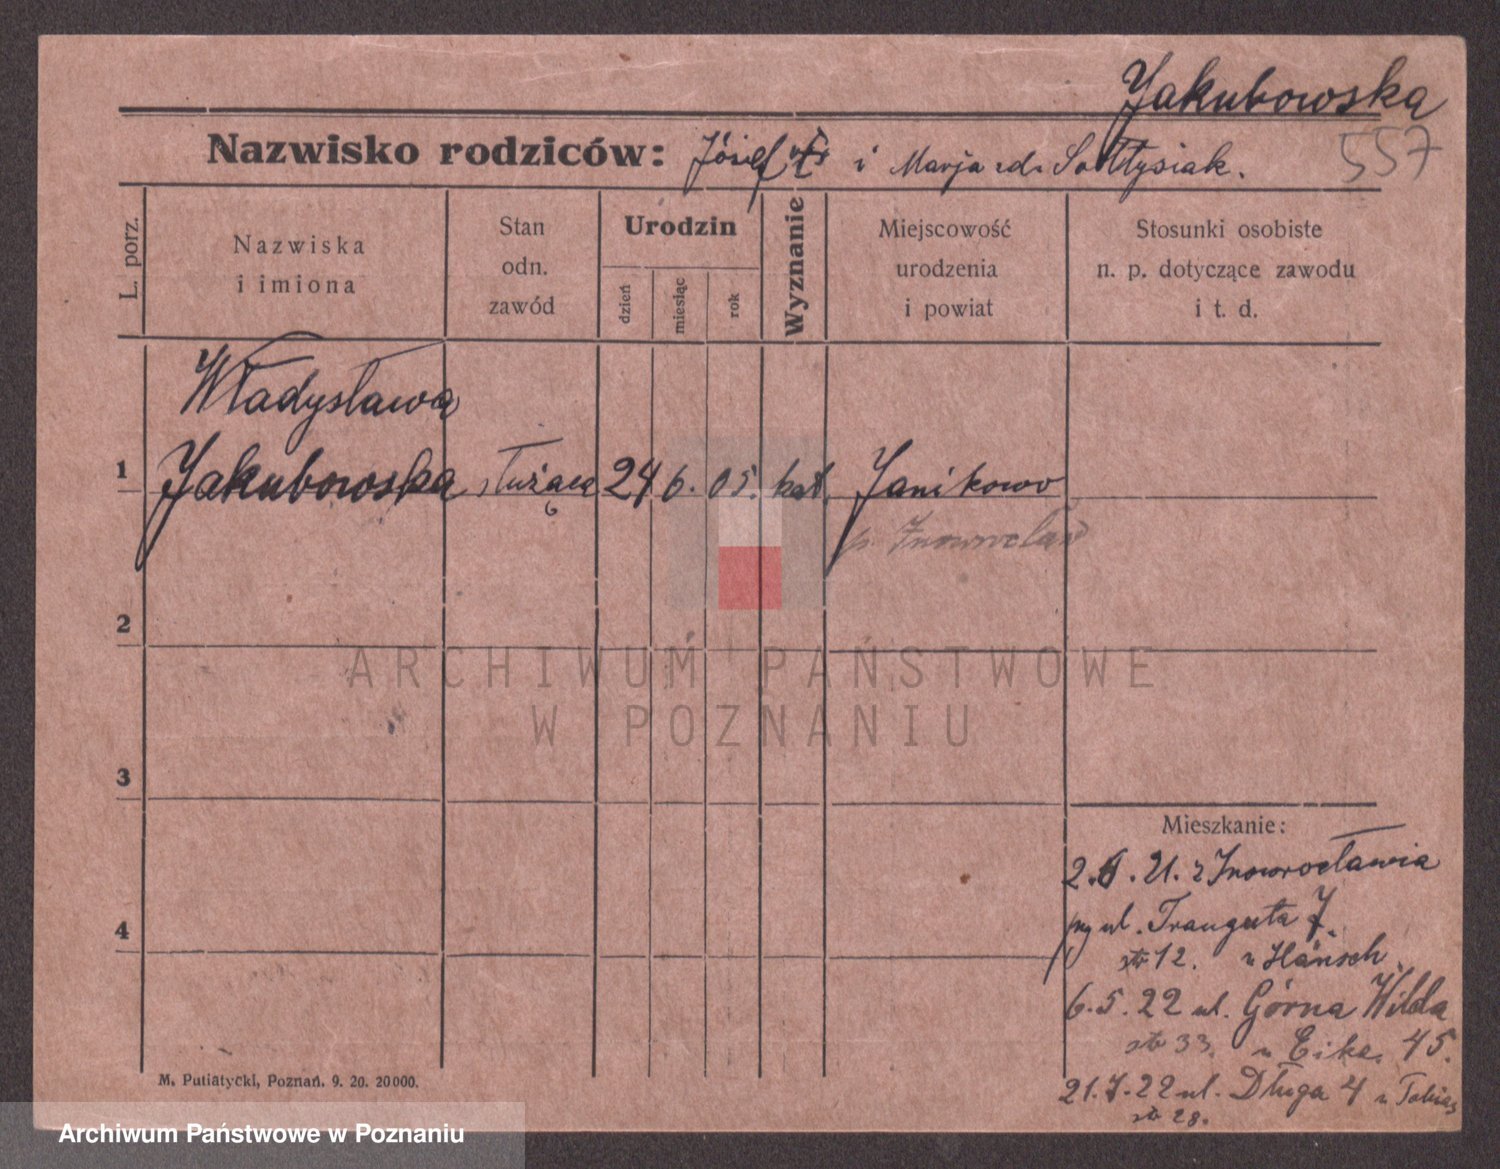 Jakubowska
Nazwisko rodziców: Józef i Marja zd. Sołtysiak.
557
L. porz.
Nazwiska
i imiona
Stan
odn.
zawód
Urodzin
dzień
miesiąc
rok
Wyznanie
Miejscowość
urodzenia
i powiat
Stosunki osobiste
n. p. dotyczące zawodu
i t. d.
Władysława
1 Jakubowska służąca 24 6. 05. kat. Janikowo
p. Inowrocław
2
3
4
Mieszkanie:
2. 21. z Inowrocławia
przy ul. Traugutta 7.
str 12. u Hänsch.
6.5.22 ul. Górna Wilda
str 33. u Eika. 45.
21.7.22 ul. Długa 4 u Tobias
str 28.
M. Putiatycki, Poznań. 9. 20. 20000.
ARCHIWUM PAŃSTWOWE
W POZNANIU
Archiwum Państwowe w Poznaniu